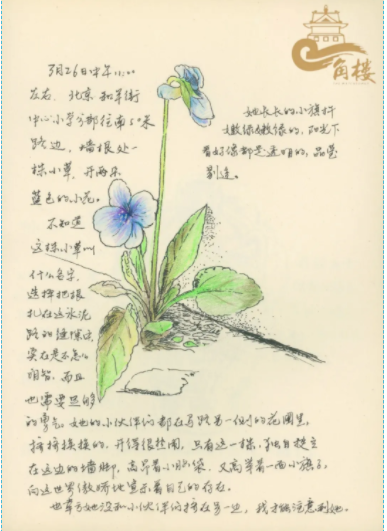 角楼
3月26日中午11:00
左右,北京和平街
中心小学分部往南50米
路边,墙根处一
株小草,开两朵
蓝色的小花。
不知道
这株小草叫
什么名字,
选择把根
扎在这水泥
路的缝隙里,
实在是不怎么
明智,而且
也需要足够
的勇气。她的小伙伴们都在马路另一侧的花圃里,
挤挤挨挨的,开得很热闹,只有这一株,独自挺立
在这边的墙脚,高昂着小脑袋,又高举着一面小旗子,
向这世界骄傲地宣示着自己的存在。
也幸亏她没和小伙伴们挤在另一边,我才能注意到她。
她长长的小旗杆
嫩绿嫩绿的,阳光下
看好像都是透明的,晶莹
剔透。